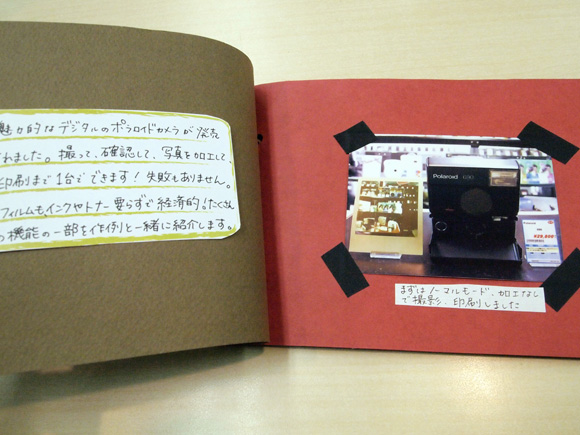 魅力的なデジタルのポラロイドカメラが発売
されました。撮って、確認して、写真を加工して、
印刷まで1台でできます!失敗もありません。
フィルムもインクやトナー要らずで経済的!たくさん
の機能の一部を作例と一緒に紹介します。
Polaroid 690
¥39,800
まずはノーマルモード、加工なし
で撮影、印刷しました